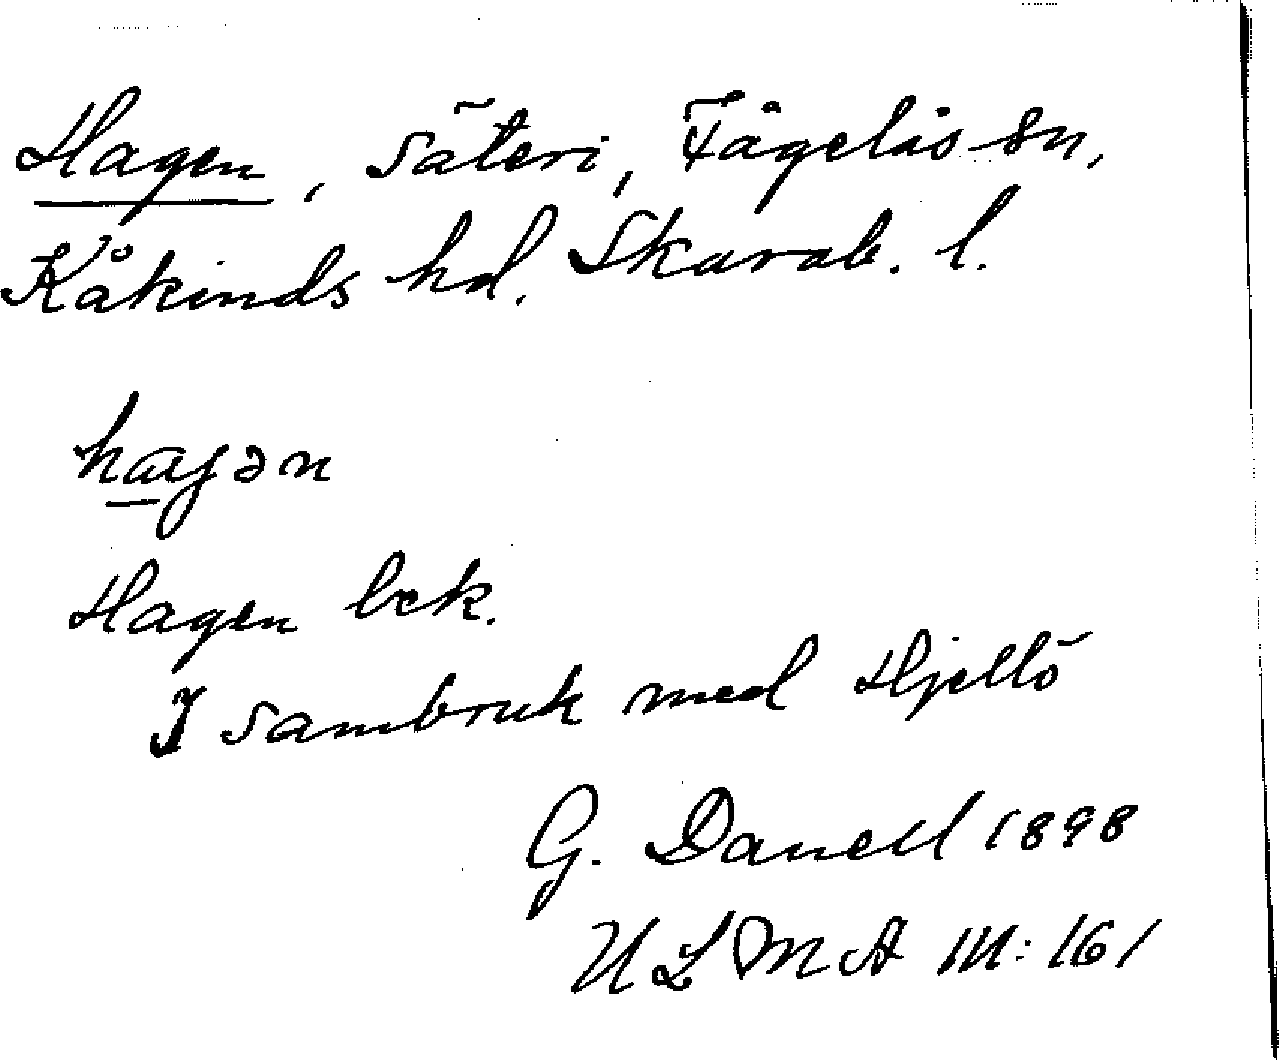 Hagen, säteri, Fägelås sn,
Kåkinds hd. Skarab. l.
hagən
Hagen bek.
I sambruk med Hjellö
G. Danell 1898
ULMA 111:161